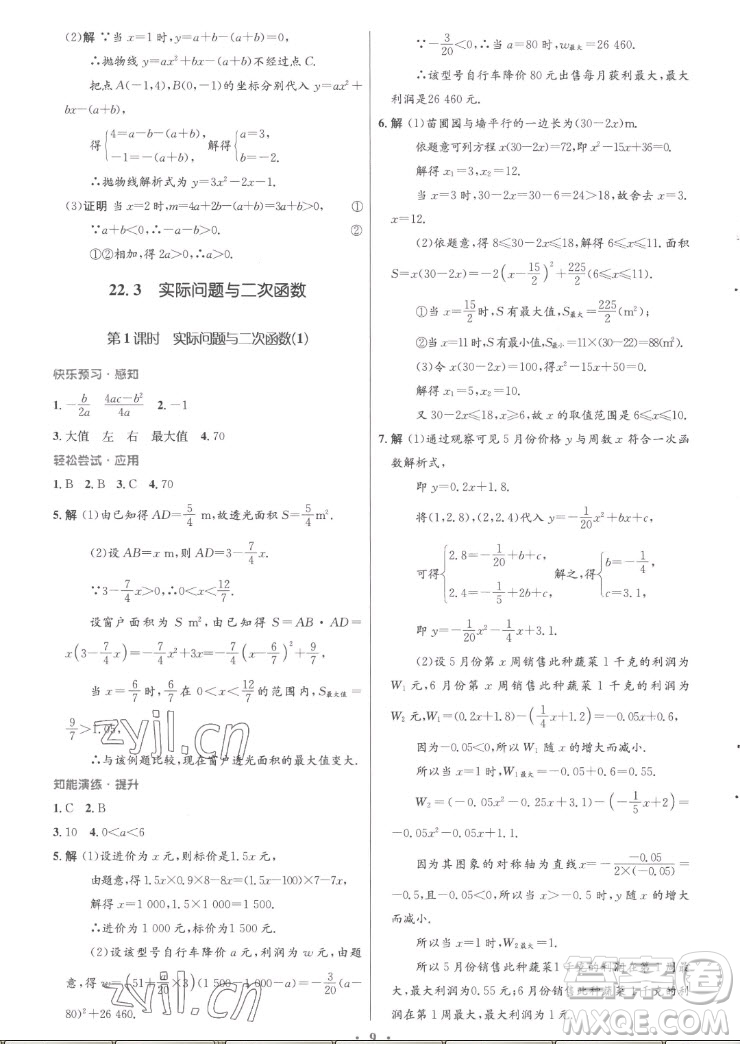 (2)解 ∵当 x=1 时,y=a+b-(a+b)=0,
∴抛物线 y=ax²+bx-(a+b)经过点 C.
把点 A(-1,4),B(0,-1)的坐标分别代入 y=ax²+
bx-(a+b),
得{4=a-b-(a+b), -1=-(a+b), 解得{a=3, b=-2.
∴抛物线解析式为 y=3x²-2x-1.
(3)证明 当 x=2 时,m=4a+2b-(a+b)=3a+b>0, ①
∵a+b<0,∴-a-b>0. ②
①②相加,得 2a>0,∴a>0.
22.3 实际问题与二次函数
第1课时 实际问题与二次函数(1)
快乐预习·感知
1. -b/2a (4ac-b²)/4a 2. -1
3. 大值 左 右 最大值 4. 70
轻松尝试·应用
1. B 2. B 3. C 4. 70
5. 解 (1)由已知得 AD=5/4 m,故透光面积 S=5/4 m².
(2)设 AB=x m,则 AD=3-7/4 x.
∵3-7/4 x>0,∴0<x<12/7.
设窗户面积为 S m²,由已知得 S=AB·AD=
x(3-7/4 x)=-7/4 x²+3x=-7/4(x-6/7)²+9/7,
当 x=6/7 时,在 0<x<12/7 的范围内,S最大值=
9/7>1.05,
∴与该例题比较,现在窗户透光面积的最大值变大.
知能演练·提升
1. C 2. B
3. 10 4. 0<a<6
5. 解 (1)设进价为 x 元,则标价是 1.5x 元,
由题意,得 1.5x×0.9×8-8x=(1.5x-100)×7-7x,
解得 x=1 000,1.5x=1 500,
∴进价为 1 000 元,标价为 1 500 元.
(2)设该型号自行车降价 a 元,利润为 w 元,由题
意,得 w=(51+a/20×3)(1 500-1 000-a)=-3/20(a-
80)²+26 460.
∵-3/20<0,∴当 a=80 时,w最大=26 460.
∴该型号自行车降价 80 元出售每月获利最大,最大
利润是 26 460 元.
6. 解 (1)苗圃园与墙平行的一边长为(30-2x)m.
依题意可列方程 x(30-2x)=72,即 x²-15x+36=0.
解得 x₁=3,x₂=12.
当 x=3 时,30-2x=30-6=24>18,故舍去 x=3.
x=12.
(2)依题意,得 8≤30-2x≤18,解得 6≤x≤11. 面积
S=x(30-2x)=-2(x-15/2)²+225/2(6≤x≤11).
①当 x=15/2 时,S 有最大值,S最大=225/2(m²);
②当 x=11 时,S 有最小值,S最小=11×(30-22)=88(m²).
(3)令 x(30-2x)=100,得 x²-15x+50=0.
解得 x₁=5,x₂=10.
又 30-2x≤18,x≥6,故 x 的取值范围是 6≤x≤10.
7. 解 (1)通过观察可见 5 月份价格 y 与周数 x 符合一次函
数解析式,
即 y=0.2x+1.8.
将(1,2.8),(2,2.4)代入 y=-1/20 x²+bx+c,
可得{2.8=-1/20+b+c, 2.4=-1/5+2b+c. 解之,得{b=-1/4, c=3.1.
即 y=-1/20 x²-1/4 x+3.1.
(2)设 5 月份第 x 周销售此种蔬菜 1 千克的利润为
W₁ 元,6 月份第 x 周销售此种蔬菜 1 千克的利润为
W₂ 元,W₁=(0.2x+1.8)-(1/4 x+1.2)=-0.05x+0.6.
因为-0.05<0,所以 W₁ 随 x 的增大而减小.
所以当 x=1 时,W₁最大=-0.05+0.6=0.55.
W₂=(-0.05x²-0.25x+3.1)-(-1/5 x+2)=
-0.05x²-0.05x+1.1.
因为其图象的对称轴为直线 x=-(-0.05)/(2×(-0.05))
=-0.5,且-0.05<0,所以当 x≥-0.5 时,W₂ 随 x 的增大
而减小.
所以当 x=1 时,W₂最大=1.
所以 5 月份销售此种蔬菜 1 千克的利润在第 1 周最大,最大
利润为 0.55 元;6 月份销售此种蔬菜 1 千克的利润在第 1 周
最大,最大利润为 1 元.
· 9 ·
zyjl.cn
zyjl.cn
答案圈
MXQE.COM